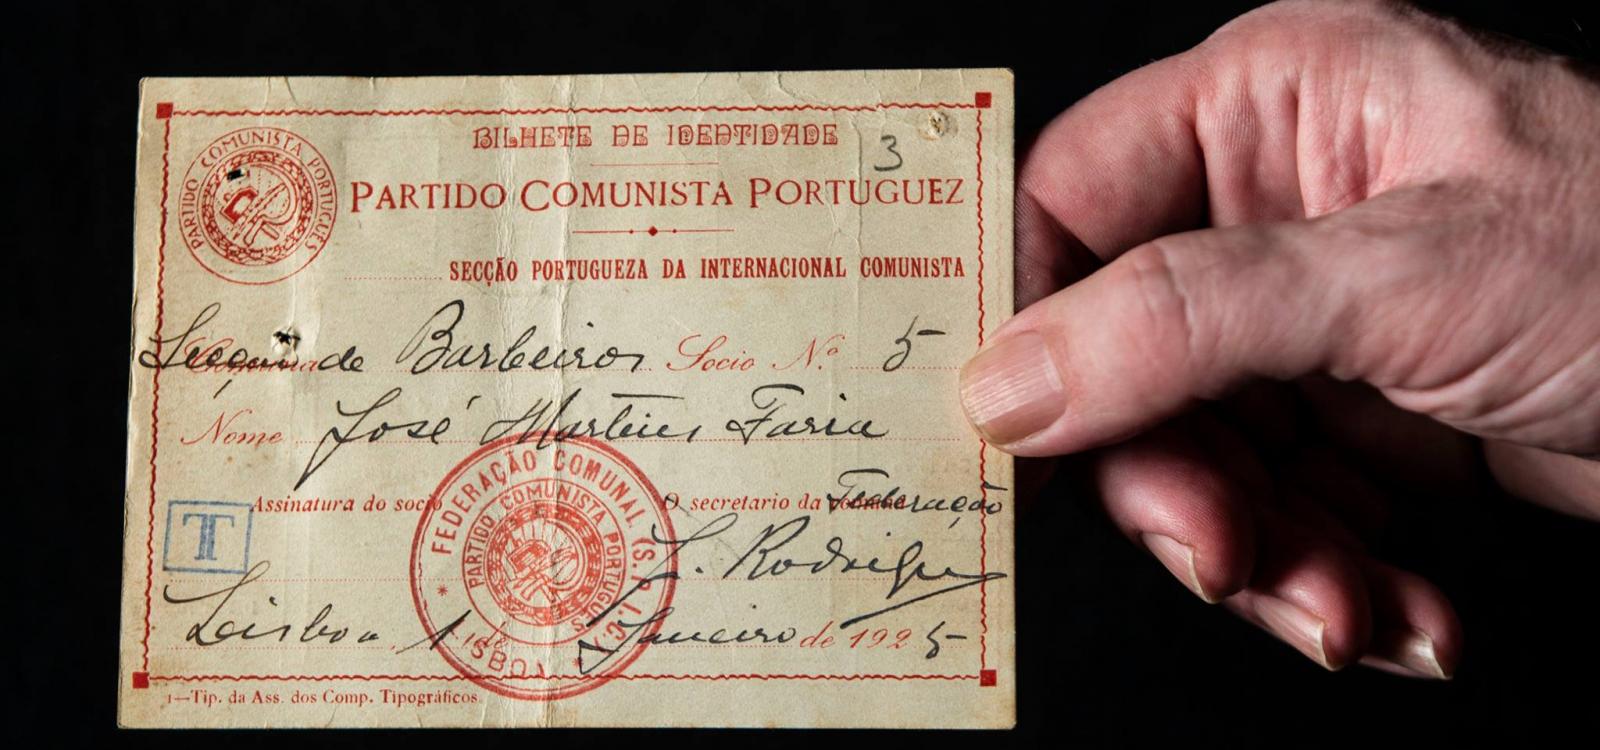 BILHETE DE IDENTIDADE
3
PARTIDO COMUNISTA PORTUGUÊS
PARTIDO COMUNISTA PORTUGUEZ
SECÇÃO PORTUGUEZA DA INTERNACIONAL COMUNISTA
Secção de Barbeiros Socio N.º 5
Nome José Martins Faria
Assinatura do socio
O secretario da Federação
T
FEDERAÇÃO COMUNAL (S. P. I. C.)
PARTIDO COMUNISTA PORTUGUÊS
LISBOA
J. Rodrigues
Lisboa, 1 de Janeiro de 1925
1—Tip. da Ass. dos Comp. Tipográficos.